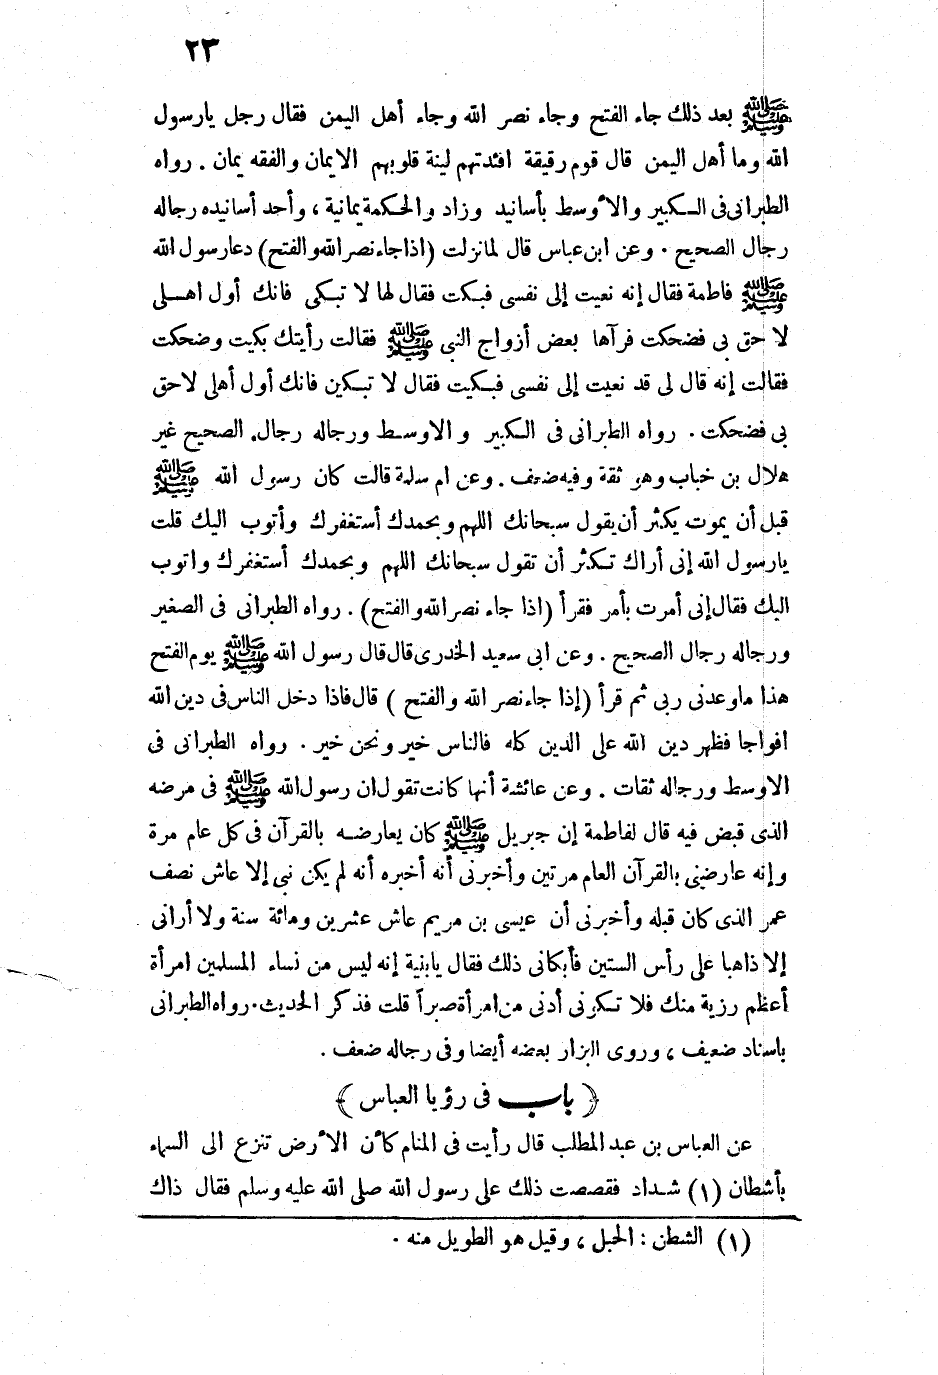 ٢٣
ﷺ بعد ذلك جاء الفتح وجاء نصر الله وجاء أهل اليمن فقال رجل يارسول
الله وما أهل اليمن قال قوم رقيقة افئدتهم لينة قلوبهم الايمان والفقه يمان . رواه
الطبرانى فى الكبير والأوسط بأسانيد وزاد والحكمة يمانية ، وأحد أسانيده رجاله
رجال الصحيح . وعن ابن عباس قال لما نزلت (اذا جاء نصر الله والفتح) دعا رسول الله
ﷺ فاطمة فقال إنه نعيت إلى نفسى فبكت فقال لها لا تبكى فانك أول اهلى
لا حق بى فضحكت فرآها بعض أزواج النبى ﷺ فقالت رأيتك بكيت وضحكت
فقالت إنه قال لى قد نعيت إلى نفسى فبكيت فقال لا تبكين فانك أول أهلى لاحق
بى فضحكت . رواه الطبرانى فى الكبير و الاوسط ورجاله رجال الصحيح غير
هلال بن خباب وهو ثقة وفيه ضعف . وعن ام سلمة قالت كان رسول الله ﷺ
قبل أن يموت يكثر أن يقول سبحانك اللهم وبحمدك أستغفرك وأتوب اليك قلت
يارسول الله إنى أراك تكثر أن تقول سبحانك اللهم وبحمدك أستغفرك واتوب
اليك فقال إنى أمرت بأمر فقرأ (اذا جاء نصر الله والفتح) . رواه الطبرانى فى الصغير
ورجاله رجال الصحيح . وعن ابى سعيد الخدرى قال قال رسول الله ﷺ يوم الفتح
هذا ماوعدنى ربى ثم قرأ (إذا جاء نصر الله والفتح ) قال فاذا دخل الناس فى دين الله
افواجا فظهر دين الله على الدين كله فالناس خير ونحن خير . رواه الطبرانى فى
الاوسط ورجاله ثقات . وعن عائشة أنها كانت تقول ان رسول الله ﷺ فى مرضه
الذى قبض فيه قال لفاطمة إن جبريل ﷺ كان يعارضه بالقرآن فى كل عام مرة
وإنه عارضنى بالقرآن العام مرتين وأخبرنى أنه أخبره أنه لم يكن نبى إلا عاش نصف
عمر الذى كان قبله وأخبرنى أن عيسى بن مريم عاش عشرين ومائة سنة ولا أرانى
إلا ذاهبا على رأس الستين فأبكانى ذلك فقال يابنية إنه ليس من نساء المسلمين امرأة
أعظم رزية منك فلا تكونى أدنى من امرأة صبراً قلت فذكر الحديث . رواه الطبرانى
باسناد ضعيف ، وروى البزار بعضه أيضا وفى رجاله ضعف .
﴿ باب فى رؤيا العباس ﴾
عن العباس بن عبد المطلب قال رأيت فى المنام كأن الأرض تنزع الى السماء
بأشطان (١) شداد فقصصت ذلك على رسول الله صلى الله عليه وسلم فقال ذاك
(١) الشطن : الحبل ، وقيل هو الطويل منه .